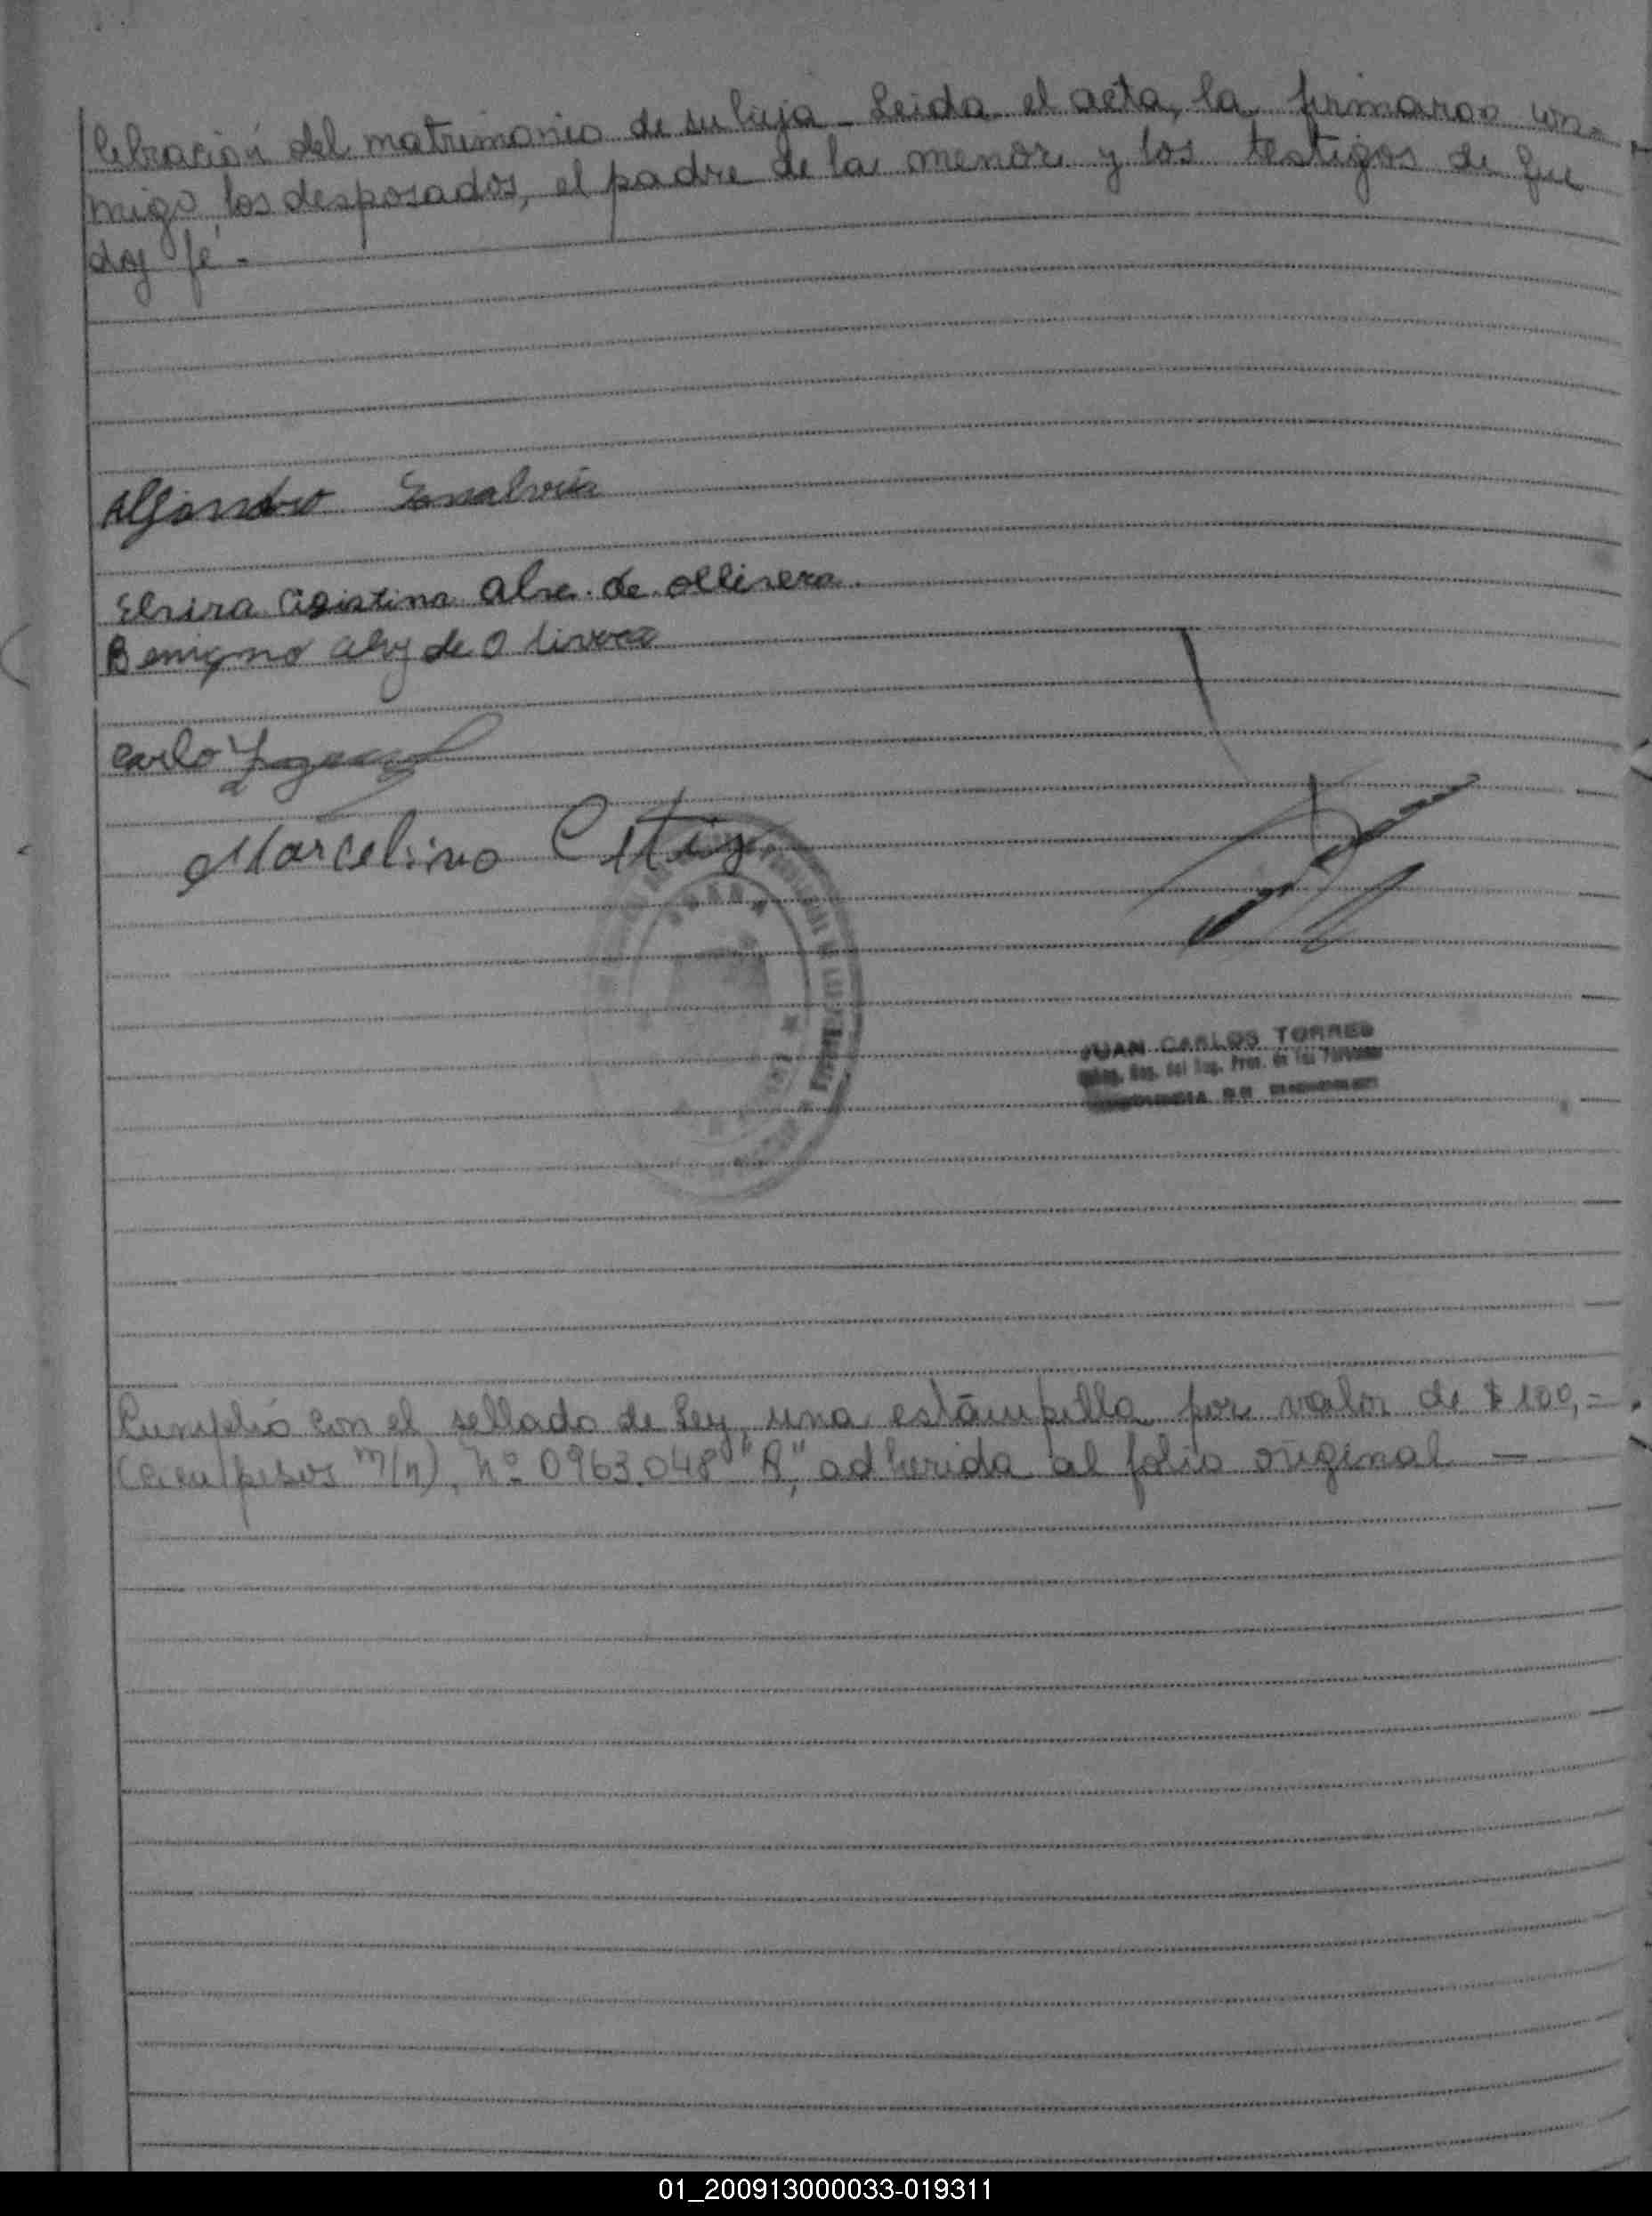 lebración del matrimonio de su hija - Leida el acta, la firmaron con-
migo los desposados, el padre de la menor y los testigos de que
doy fé -
Elvira Cristina Alve. de Ollivera
Benigno Alvz de Olivera
Carlo
Marcelino Ortiz
JUAN CARLOS TORRES
Reg. del Reg. Prov. de las Personas
Cumplió con el sellado de Ley, una estampilla por valor de $ 100,=
(cien pesos m/n), Nº 0963.048 "A", adherida al folio original —
01_200913000033-019311